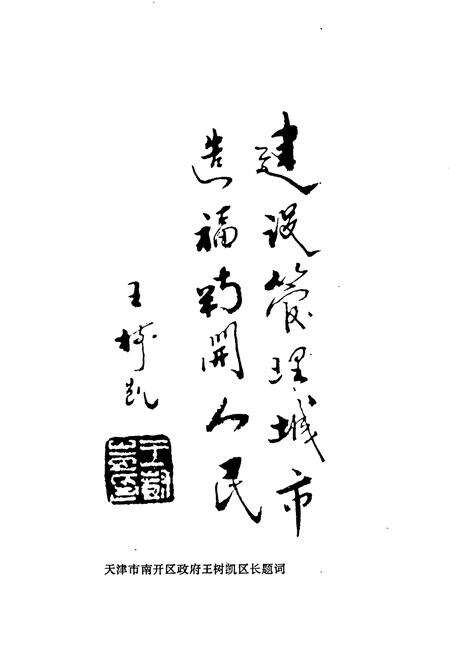 建设管理城市
造福南開人民
王树凯
天津市南开区政府王树凯区长题词